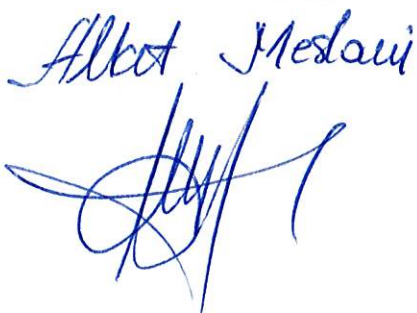 Albot Meslani